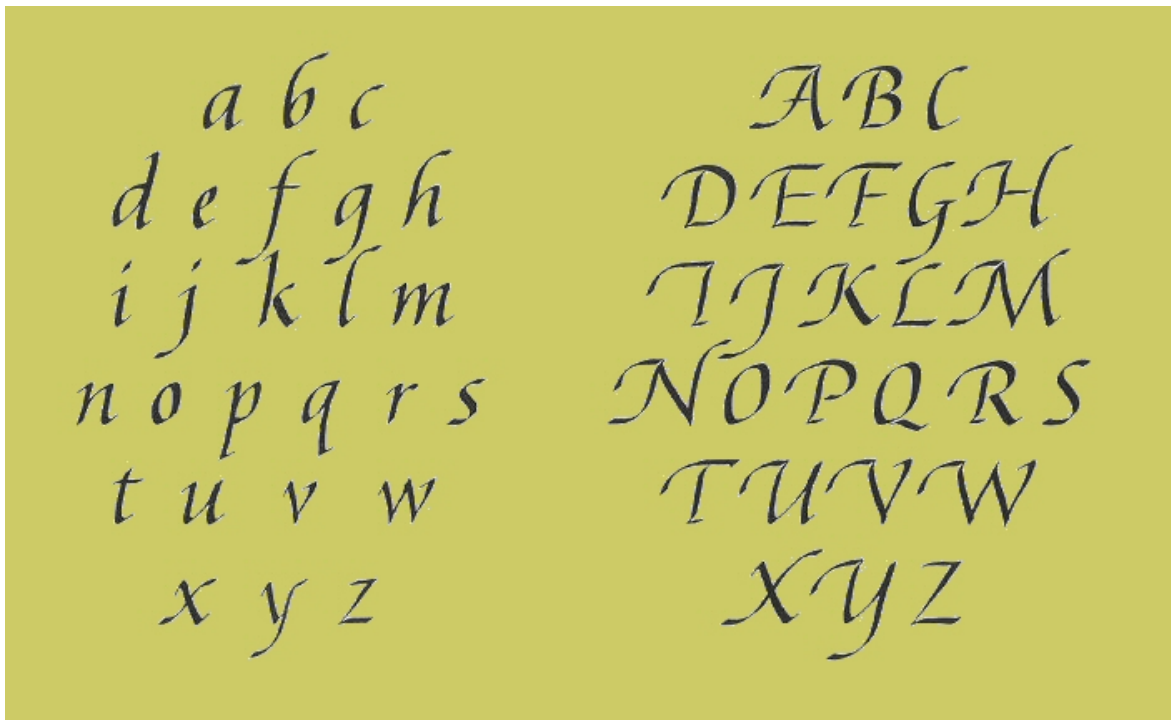 a b c
d e f g h
i j k l m
n o p q r s
t u v w
x y z
A B C
D E F G H
I J K L M
N O P Q R S
T U V W
X Y Z